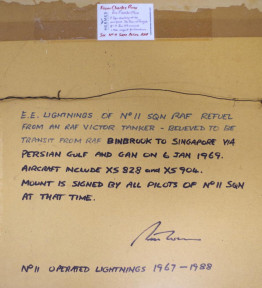 E.E. LIGHTNINGS OF Nº11 SQN RAF REFUEL
FROM AN RAF VICTOR TANKER - BELIEVED TO BE
TRANSIT FROM RAF BINBROOK TO SINGAPORE VIA
PERSIAN GULF AND GAN ON 6 JAN 1969.
AIRCRAFT INCLUDE XS928 AND XS904.
MOUNT IS SIGNED BY ALL PILOTS OF Nº11 SQN
AT THAT TIME.
Nº11 OPERATED LIGHTNINGS 1967-1988